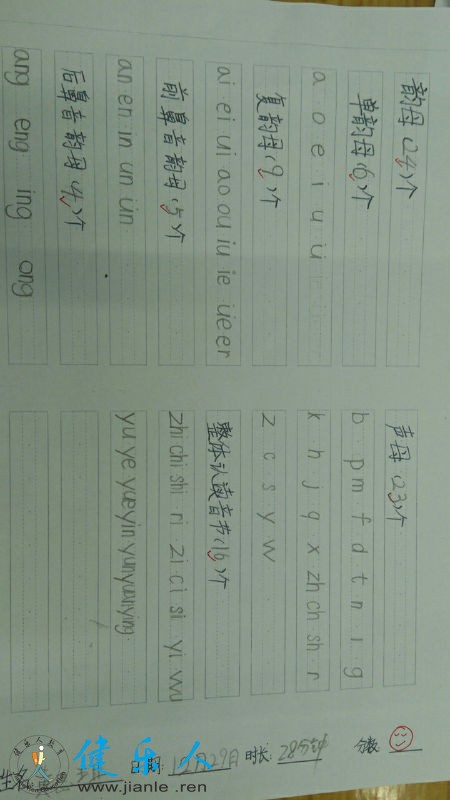 韵母(24)个
单韵母(6)个
a o e i u ü
复韵母(9)个
ai ei ui ao ou iu ie üe er
前鼻音韵母(5)个
an en in un ün
后鼻音韵母(4)个
ang eng ing ong
声母(23)个
b p m f d t n l g
k h j q x zh ch sh r
z c s y w
整体认读音节(16)个
zhi chi shi ri zi ci si yi wu
yu ye yue yin yun yuan ying
生名: 日期: 12月29日 时长: 28分钟 分数:
健乐人
www.jianle .ren